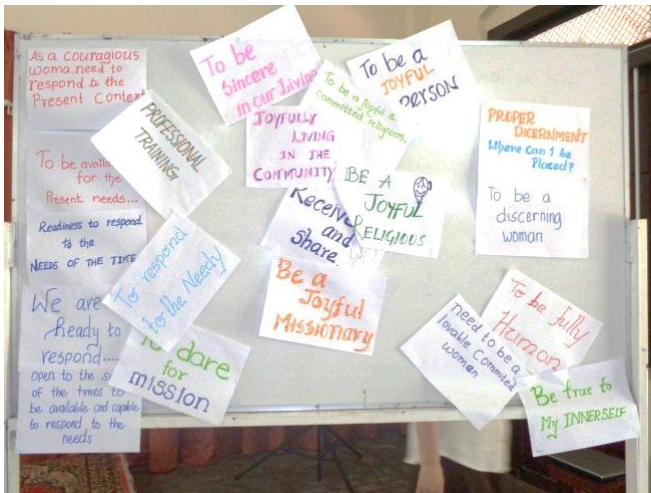 As a couragious
woma.need to
respond to the
Present Context
To be availa
for the
Present needs...
Readiness to respond
to the
NEEDS OF THE TIME
We are
Ready to
respond.....
open to the si
of the times to
be available and capable
to respond to the
needs
PROFESSIONAL
TRAINING
To respond
to the Needy
To dare
for
mission
To be
Sincere
in our Living
To be a
JOYFUL
PERSON
To be a Joyful &
committed religious.
JOYFULLY
LIVING
IN THE
COMMUNITY
Receive
and
Share.
BE A
JOYFUL
RELIGIOUS
Be a
Joyful
Missionary
PROPER
DICERNMENT
Where can I be
Placed?
To be a
discerning
woman
To be fully
Human
need to be a
lovable Commited
woman
Be true to
My INNERSELF